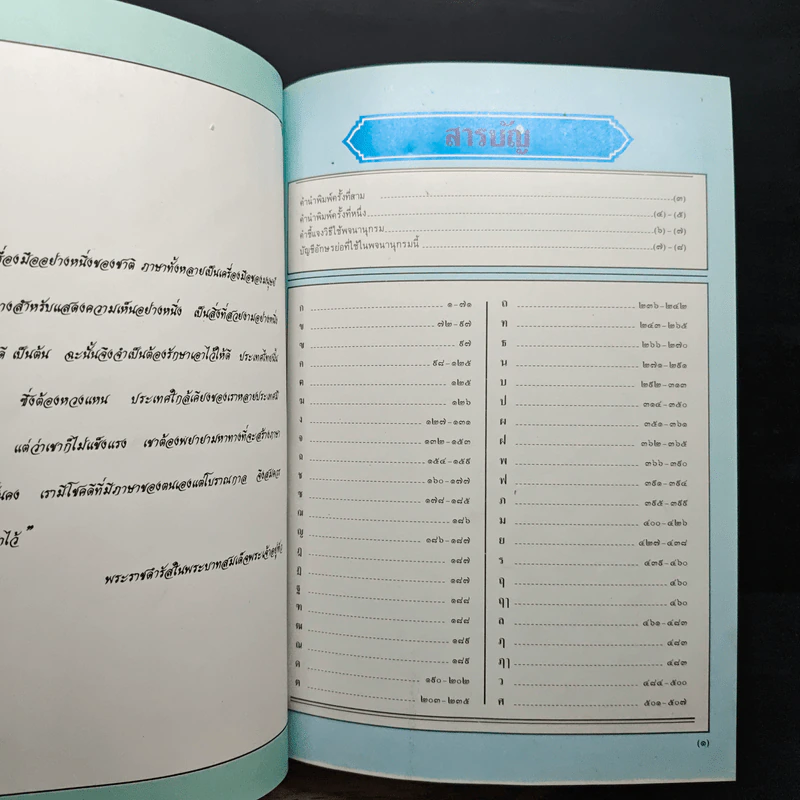 รื่องมืออย่างหนึ่งของชาติ ภาษาทั้งหลายเป็นเครื่องมือของมนุษย์
างสำหรับแสดงความเห็นอย่างหนึ่ง เป็นสิ่งที่สวยงามอย่างหนึ่ง
ดี เป็นต้น ฉะนั้นจึงจำเป็นต้องรักษาเอาไว้ให้ดี ประเทศไทยนั้น
ซึ่งต้องหวงแหน ประเทศใกล้เคียงของเราหลายประเทศมี
แต่ว่าเขาก็ไม่แข็งแรง เขาต้องพยายามหาทางที่จะสร้างภาษา
ั่นคง เรามีโชคดีที่มีภาษาของตนเองแต่โบราณกาล จึงสมควร
าไว้ ”
พระราชดำรัสในพระบาทสมเด็จพระเจ้าอยู่หัว
สารบัญ
คำนำพิมพ์ครั้งที่สาม (๓)
คำนำพิมพ์ครั้งที่หนึ่ง (๔) - (๕)
คำชี้แจงวิธีใช้พจนานุกรม (๖) - (๗)
บัญชีอักษรย่อที่ใช้ในพจนานุกรมนี้ (๗) - (๘)
ก ๑-๗๑
ข ๗๒-๙๗
ฃ ๙๗
ค ๙๘-๑๒๕
ฅ ๑๒๕
ฆ ๑๒๖
ง ๑๒๗-๑๓๑
จ ๑๓๒-๑๕๓
ฉ ๑๕๔-๑๕๙
ช ๑๖๐-๑๗๗
ซ ๑๗๘-๑๘๕
ฌ ๑๘๖
ญ ๑๘๖-๑๘๗
ฎ ๑๘๗
ฏ ๑๘๗
ฐ ๑๘๘
ฑ ๑๘๘
ฒ ๑๘๙
ณ ๑๘๙
ด ๑๙๐-๒๐๒
ต ๒๐๓-๒๓๕
ถ ๒๓๖-๒๔๒
ท ๒๔๓-๒๖๕
ธ ๒๖๖-๒๗๐
น ๒๗๑-๒๙๑
บ ๒๙๒-๓๑๓
ป ๓๑๔-๓๕๐
ผ ๓๕๑-๓๖๑
ฝ ๓๖๒-๓๖๕
พ ๓๖๖-๓๙๐
ฟ ๓๙๑-๓๙๔
ภ ๓๙๕-๓๙๙
ม ๔๐๐-๔๒๖
ย ๔๒๗-๔๓๘
ร ๔๓๙-๔๖๐
ฤ ๔๖๐
ฤๅ ๔๖๐
ล ๔๖๑-๔๘๓
ฦ ๔๘๓
ฦๅ ๔๘๓
ว ๔๘๔-๕๐๐
ศ ๕๐๑-๕๐๗
(๑)